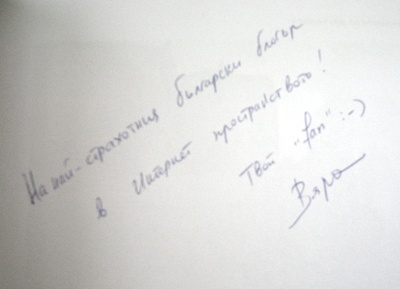 На най-страхотния български блогър
в Интернет пространството!
Твой "fan" :-)
Вяра